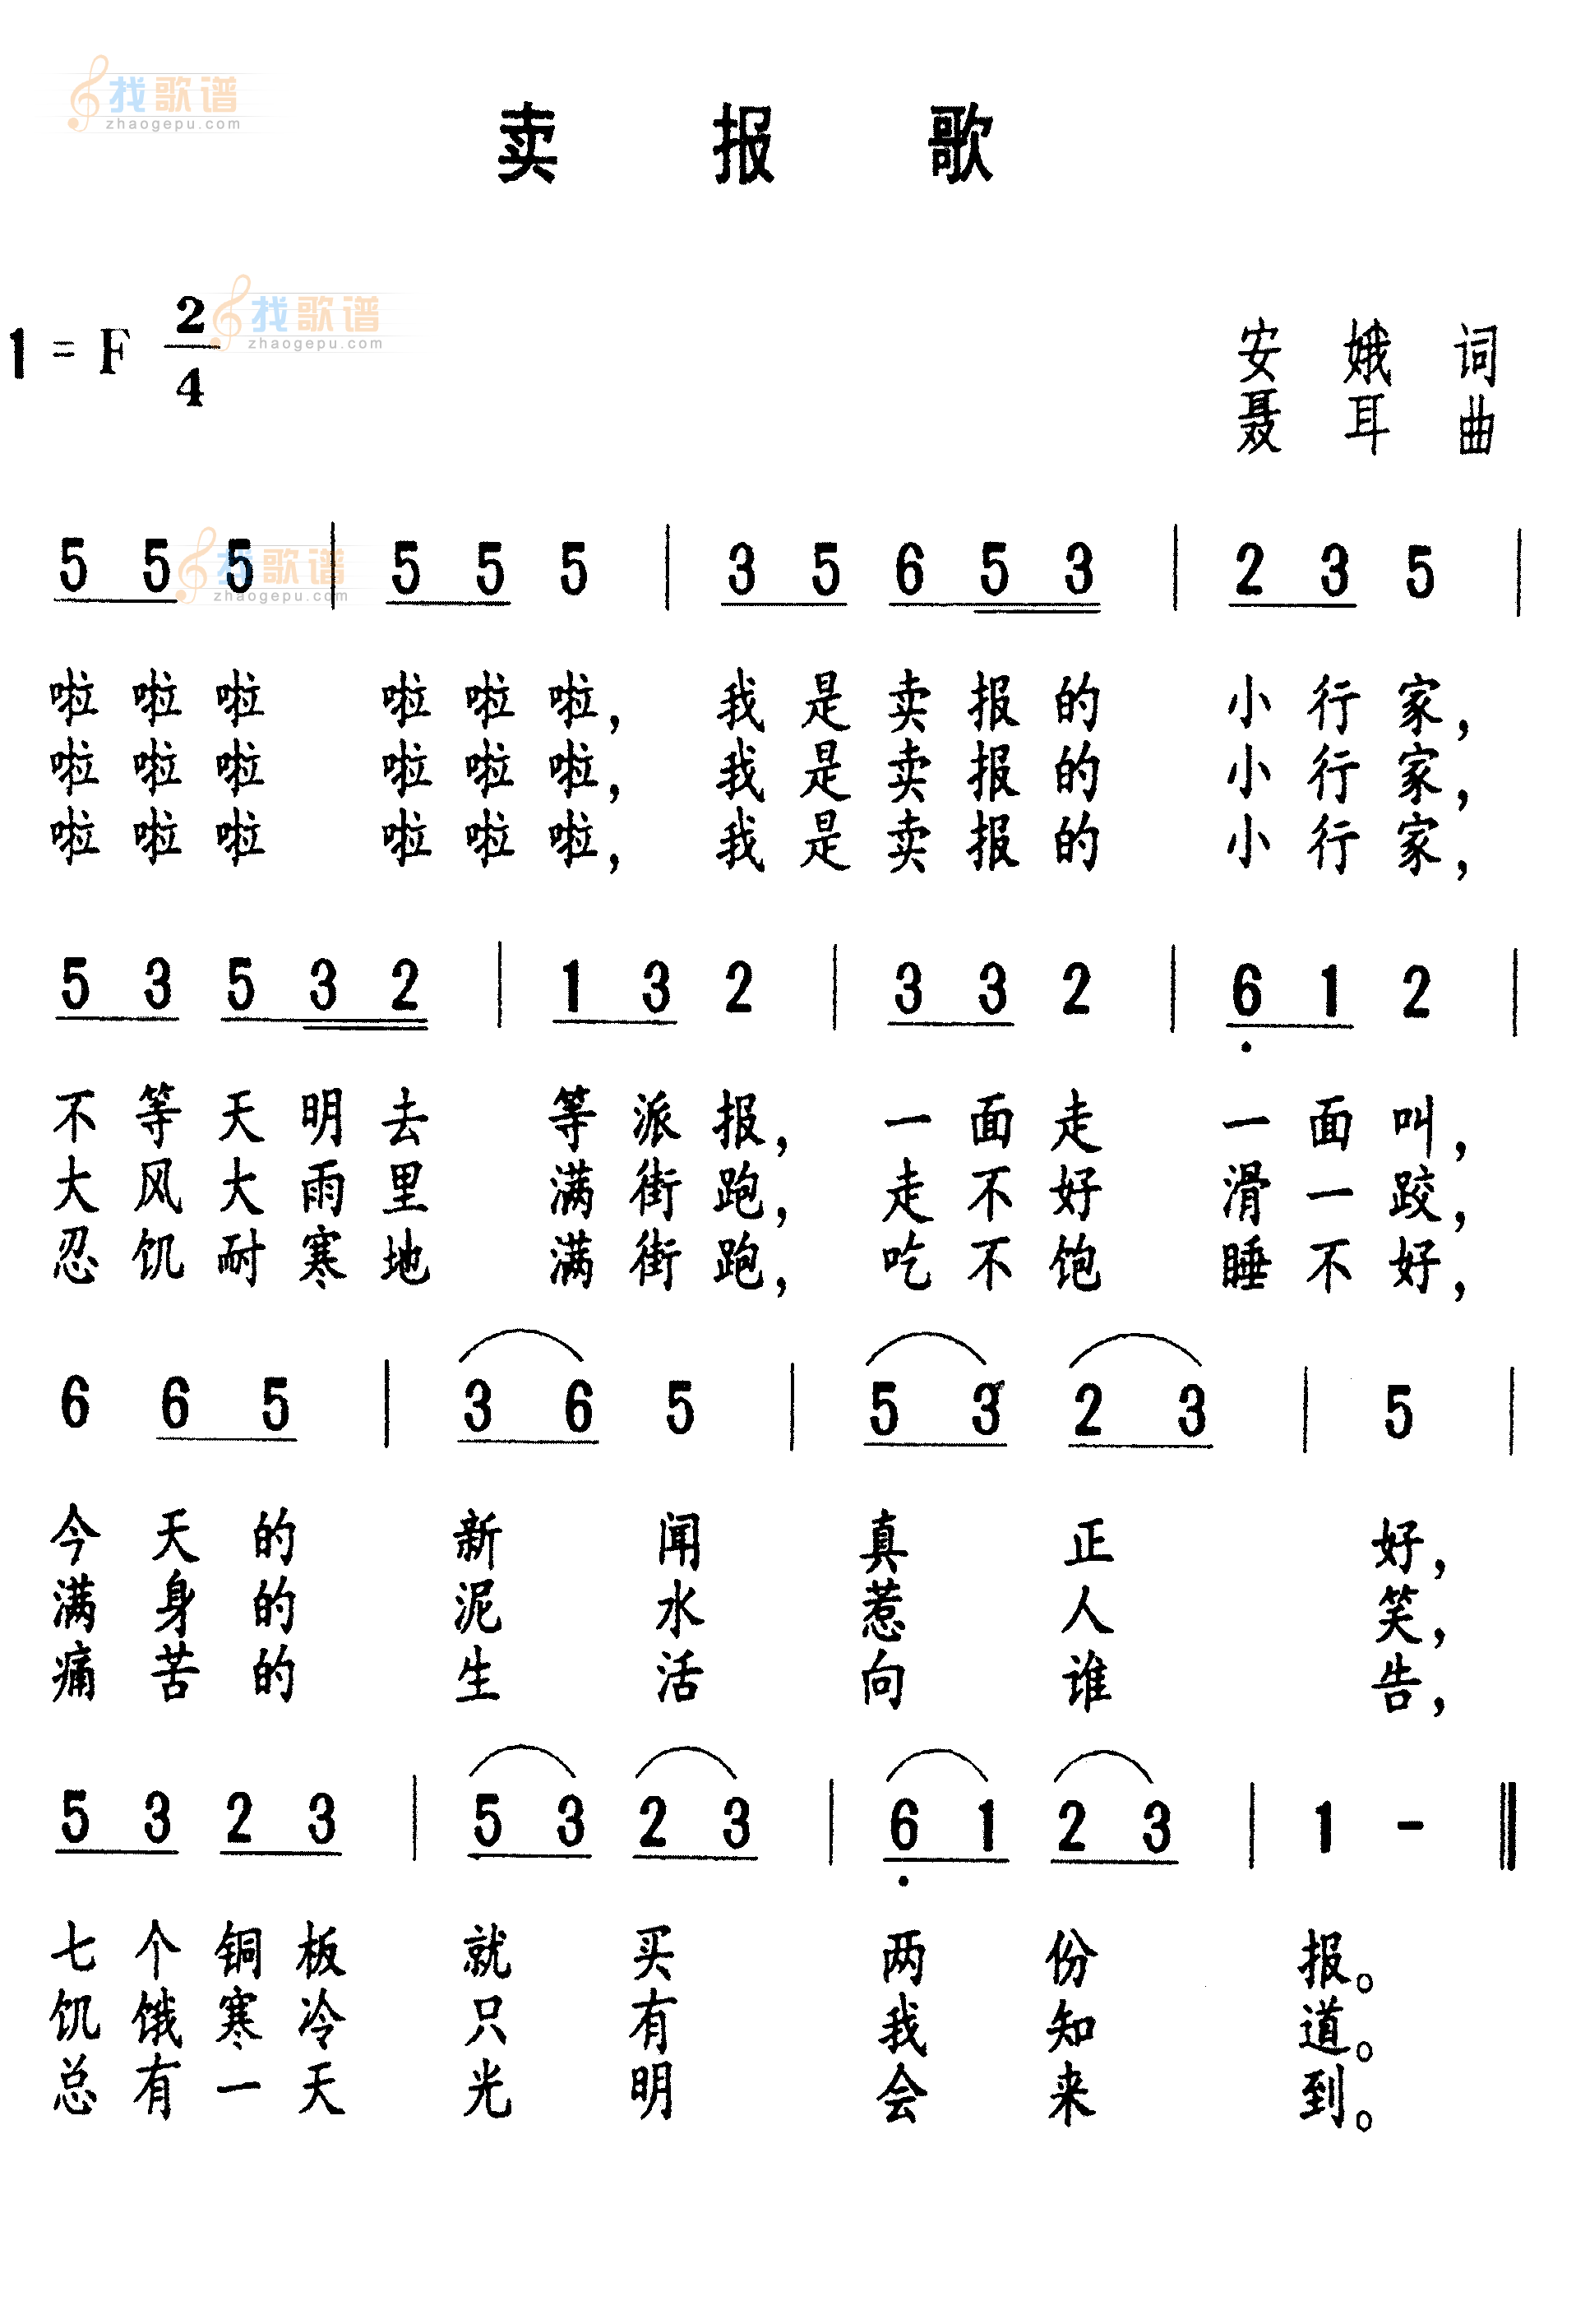 找歌谱
zhaogepu.com
卖报歌
1 = F 2/4
找歌谱
zhaogepu.com
安娥词
聂耳曲
找歌谱
zhaogepu.com
5 5 5 | 5 5 5 | 3 5 6 5 3 | 2 3 5 |
啦啦啦 啦啦啦，我是卖报的 小行家，
啦啦啦 啦啦啦，我是卖报的 小行家，
啦啦啦 啦啦啦，我是卖报的 小行家，
5 3 5 3 2 | 1 3 2 | 3 3 2 | 6̣ 1 2 |
不等天明去 等派报，一面走 一面叫，
大风大雨里 满街跑，走不好 滑一跤，
忍饥耐寒地 满街跑，吃不饱 睡不好，
6 6 5 | 3 6 5 | 5 3 2 3 | 5 |
今天的 新闻 真正 好，
满身的 泥水 惹人 笑，
痛苦的 生活 向谁 告，
5 3 2 3 | 5 3 2 3 | 6̣ 1 2 3 | 1 - ‖
七个铜板 就买 两份 报。
饥饿寒冷 只有 我知 道。
总有一天 光明 会来 到。